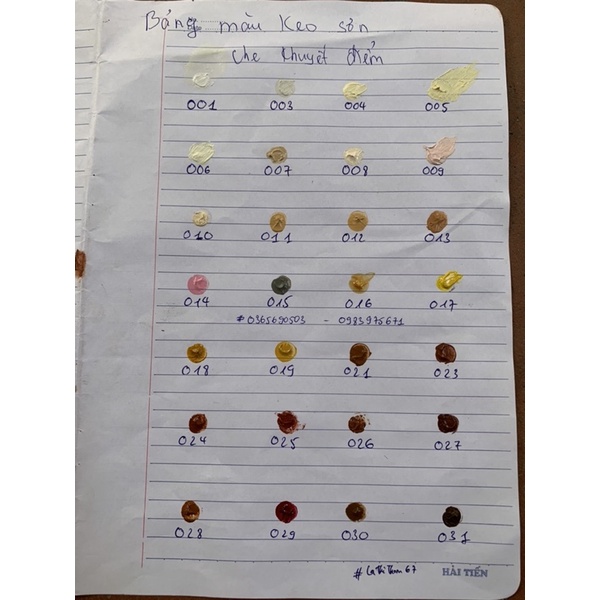 Bảng màu Keo sơn
che khuyết điểm
001 003 004 005
006 007 008 009
010 011 012 013
014 015 016 017
#0365690503 - 0983975671
018 019 021 023
024 025 026 027
028 029 030 031
#
HẢI TIẾN